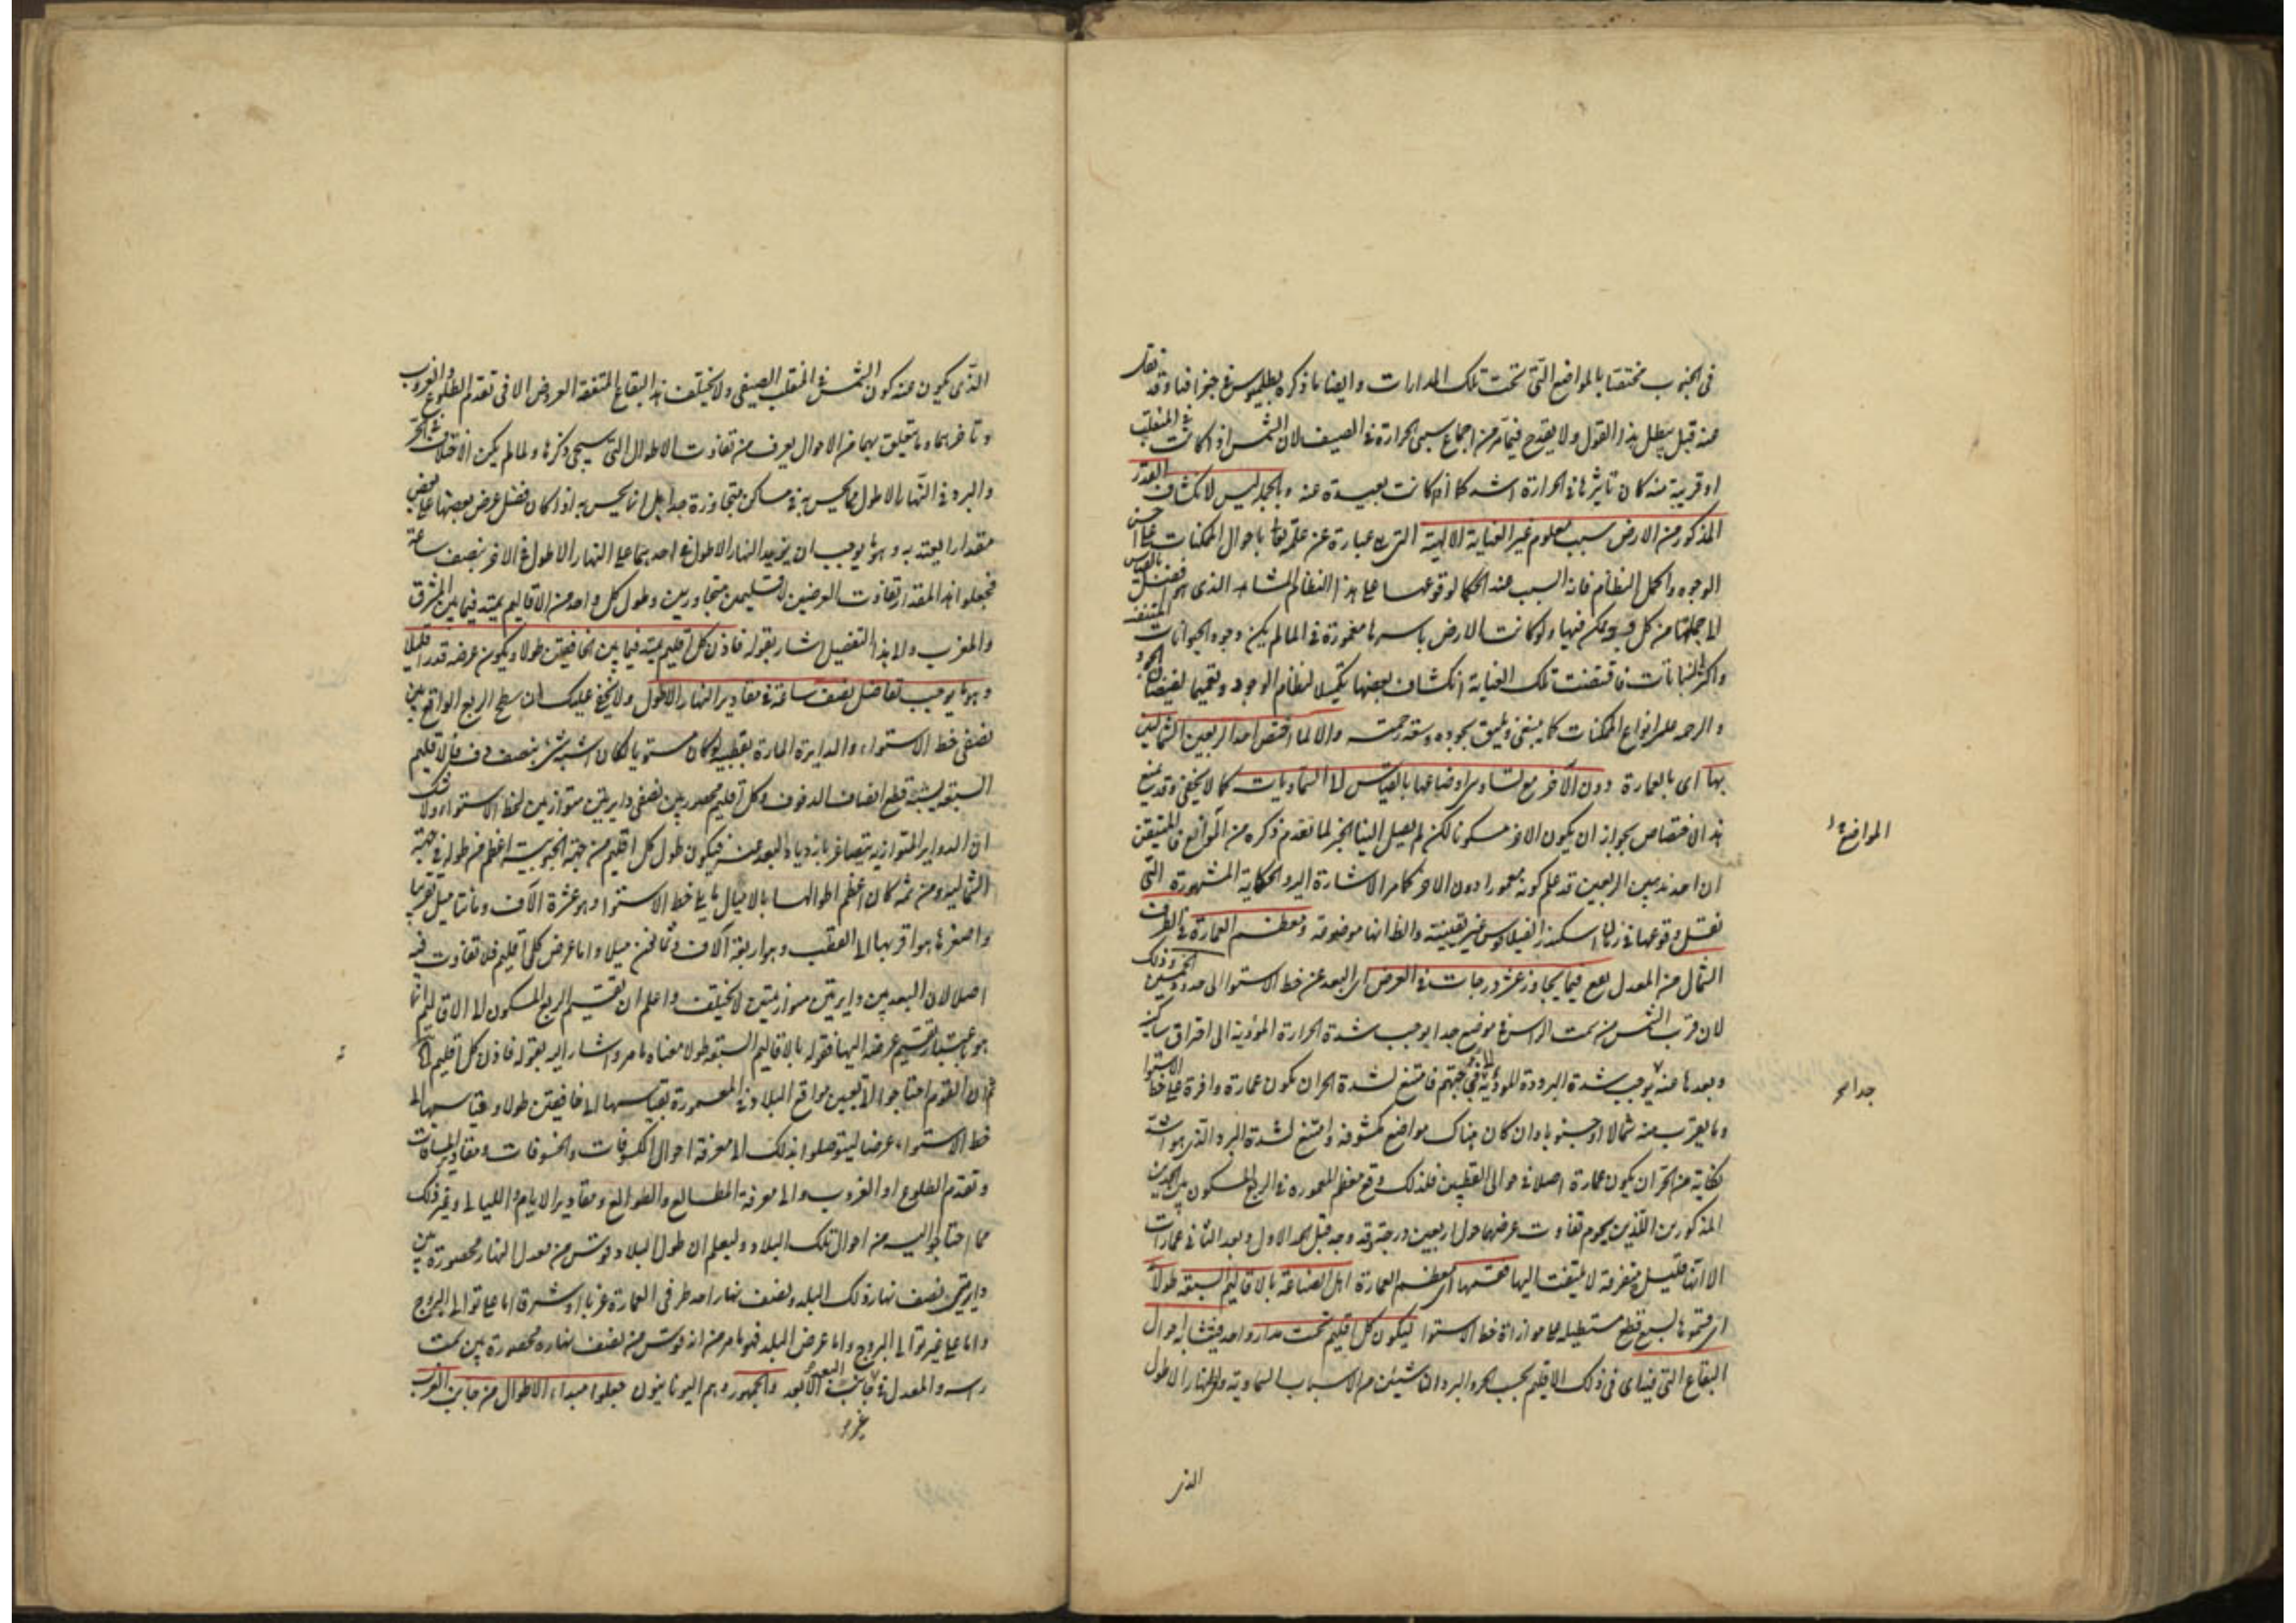 فى الجنوب مختصا بالمواضع التى تحت تلك المدارات وايضا ما ذكره بطليموس فى جغرافيا وقد نقل
عنه قبل يبطل هذا القول ولا يقدح فيما مر من اجماع سببى الحرارة فى الصيف لان الشمس اذا كانت فى المنقلب
او قريبة منه كان تاثيرها فى الحرارة اشد مما اذا كانت بعيدة عنه وبالجملة ليس لانكشاف القدر
المذكور من الارض سبب معلوم غير العناية الالهية التى هى عبارة عن علمه تعالى باحوال الممكنات على احسن
الوجوه واكمل النظام فانه السبب عند الحكما لوقوعها على هذا النظام المشاهد الذى هو افضل بالقياس
الى جملتها من كل وجه يمكن فيها ولو كانت الارض باسرها مغمورة فى الما لم يكن وجود الحيوانات المتنفسة
واكثر النباتات فاقتضت تلك العناية انكشاف بعضها تكميلا لنظام الوجود وتعميما لفيضان الجود
والرحمه على انواع الممكنات كما ينبغى ويليق بجوده وسعة رحمته والا لما اختص احد الربعين الشماليين
بها اى بالعمارة دون الاخر مع تساوى اوضاعها بالقياس الى السماويات كما لا يخفى وقد يمنع
هذا الاختصاص بجواز ان يكون الاخر مسكونا لكن لم يصل الينا الخبر لما تقدم ذكره من الموانع فالمتيقن
ان احد هذين الربعين قد علم كونه معمورا دون الاخر كما مر الاشارة اليه والحكاية المشهورة التى
نقل وقوعها فى زمان اسكندر الفيلقوس غير يقينية والظ انها موضوعة ومعظم العمارة فى الطرف
الشمال من المعدل يقع فيما يجاوز عشر درجات فى العرض اى البعد عن خط الاستوا الى حدود الخمسين وذلك
لان قرب الشمس من سمت الراس فى موضع جدا يوجب شدة الحرارة المؤدية الى احتراق ساكنيه
وبعدها عنه يوجب شدة البرودة المؤدية الى فجاجتهم فامتنع لشدة الحر ان يكون عمارة وافرة على خط الاستوا
وما يقرب منه شمالا او جنوبا وان كان هناك مواضع مكشوفة وامتنع لشدة البرد الذى هو اشد
نكاية من الحر ان يكون عمارة اصلا فى حوالى القطبين فلذلك وقع معظم المعموره فى الربع المسكون بين الحدين
المذكورين اللذين يحوم تفاوت عرضهما حول اربعين درجة وقد وجد قبل الحد الاول وبعد الثانى عمارات
الا انها قليلة متفرقة لا يلتفت اليها فقسمها اى معظم العمارة اهل الصناعة بالاقاليم السبعة طولا
اى قسموها بسبع قطع مستطيلة على موازاة خط الاستوا ليكون كل اقليم تحت مدار واحد فيتشابه احوال
البقاع التى فيه اى فى ذلك الاقليم بحسب الحر والبرد الناشئين من الاسباب السماوية والنهار الاطول
المواضع
جدا
الذى
الذى يكون عند كون الشمس فى المنقلب الصيفى ولا يختلف هذه البقاع المتفقة العروض الا فى تقدم الطلوع والغروب
وتاخرهما وما يتعلق بهما من الاحوال يعرف من تفاوت الاطوال التى سيجى ذكرها ولما لم يكن الاختلاف فى الحر
والبرد فى النهار الاطول مما يحس به فى مساكن متجاورة جدا بل انما يحس به اذا كان فضل عرض بعضها على بعض
مقدارا يعتد به وهو ما يوجب ان يزيد النهار الاطول فى احدهما على النهار الاطول فى الاخر بنصف ساعة
فجعلوا هذا المقدار تفاوت العرضين لاقليمين متجاورين وطول كل واحد من الاقاليم يمتد فيما بين المشرق
والمغرب والى هذا التفصيل اشار بقوله فاذن كل اقليم يمتد فيما بين الخافقين طولا ويكون عرضه قدرا قليلا
وهو ما يوجب تفاضل نصف ساعة فى مقادير النهار الاطول ولا يخفى عليك ان سطح الربع الواقع بين
نصفى خط الاستواء والدايرة المارة بقطبيه لو كان مستويا لكان اشبه شى بنصف دف فالاقليم
السبعة يشبه قطع انصاف الدفوف وكل اقليم محصور بين نصفى دايرتين متوازيتين لخط الاستواء ولا شك
ان الدواير المتوازية يتصاغر بازدياد البعد عنه فيكون طول كل اقليم من جهته الجنوبية اعظم من طوله فى جهته
الشمالية ومن ثمه كان اعظم اطوالها بالاميال ما يلى خط الاستوا وهو عشرة الآف ومائتا ميل تقريبا
واصغرها هو اقربها الى القطب وهو اربعة آلاف وثمانون ميلا واما عرض كل اقليم فلا تفاوت فيه
اصلا لان البعد بين دايرتين متوازيتين لا يختلف واعلم ان تقسيم الربع المسكون الى الاقاليم انما
هو باعتبار تقسيم عرضه اليها فقوله بالاقاليم السبعة طولا معناه ما مر واشار اليه بقوله فاذن كل اقليم الخ
ثم ان القوم احتاجوا الى تعيين مواقع البلاد فى المعمورة بقياسها الى الخافقين طولا وبقياسها الى
خط الاستواء عرضا ليتوصلوا بذلك الى معرفة احوال الكسوفات والخسوفات ومقادير المسافات
وتقدم الطلوع او الغروب والى معرفة المطالع والطوالع ومقادير الايام والليالى وغير ذلك
مما احتاجوا اليه من احوال تلك البلاد وليعلم ان طول البلاد قوس من معدل النهار محصورة بين
دايرتى نصف نهار ذلك البلد ونصف نهار احد طرفى العمارة غربا او شرقا اما على توالى البروج
واما على غير توالى البروج واما عرض البلد فهو ما مر من انه قوس من نصف نهاره محصورة بين سمت
راسه والمعدل فى جانب لا ابعد والجمهور وهم اليونانيون جعلوا مبداء الاطوال من جانب الغرب